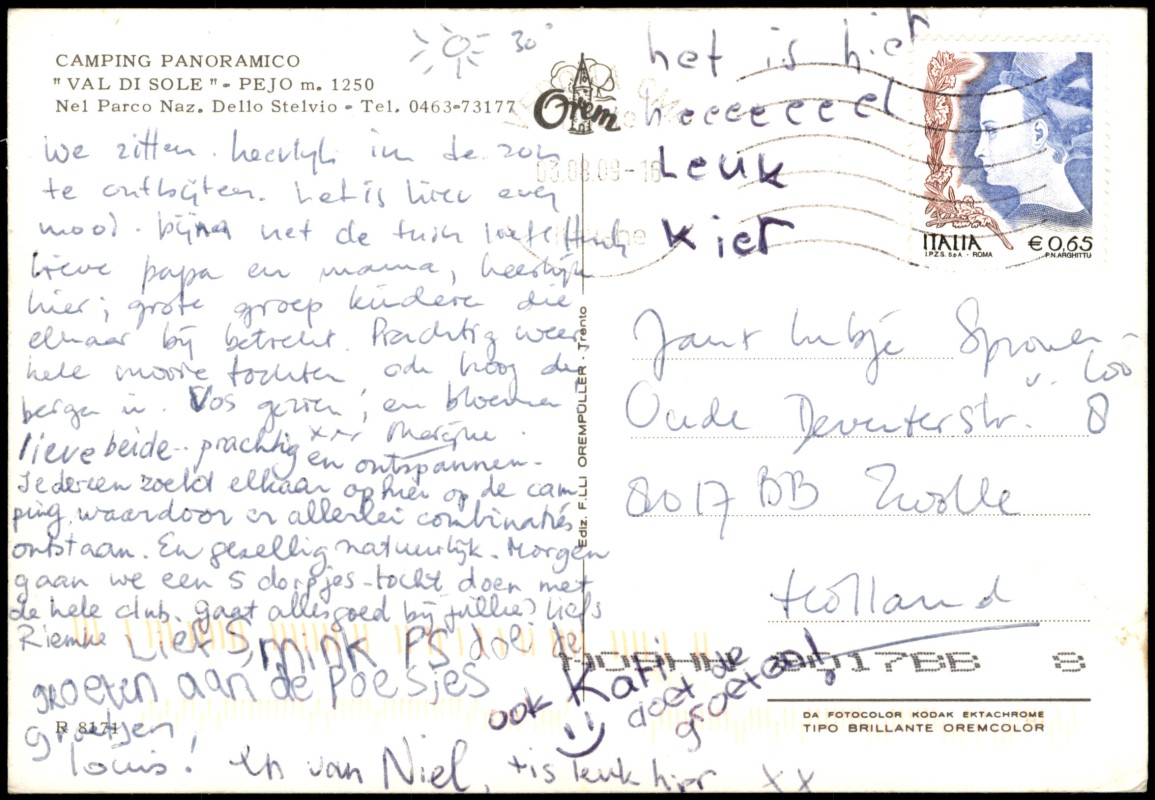 CAMPING PANORAMICO
" VAL DI SOLE " - PEJO m. 1250
Nel Parco Naz. Dello Stelvio - Tel. 0463-73177
30°
Orem
We zitten heerlijk in de zon
te ontbijten. het is hier erg
mooi. bijna net de tuin
lieve papa en mama, heerlijk
hier; grote groep kinderen die
elkaar bij betrekt. Prachtig weer
hele mooie tochten, ook hoog de
bergen in. Vos gezien, en bloemen
xxx Marijne.
lieve beide.. prachtig en ontspannen.
Iedereen zoekt elkaar op hier op de cam
ping, waardoor er allerlei combinaties
ontstaan. En gezellig natuurlijk. Morgen
gaan we een 5 dorpjes-tocht doen met
de hele club. Gaat alles goed bij jullie? Liefs
Riemke Liefs, mink PS doe de
groeten aan de Poesjes
groetjen
R 8171
Touis! En van Niel, tis leuk hier xx
ook Kati die
doet de
groeten!
Ediz. F.LLI OREMPÜLLER - Trento
het is hier
heeeeeeel
Leuk
Kier
03.08.09-16
ITALIA € 0,65
I.P.Z.S. S.p.A. - ROMA P.N. ARGHITTU
Jant Lubje
Oude Deventerstr. 8
8017 BB Zwolle
Holland
8017BB 8
DA FOTOCOLOR KODAK EKTACHROME
TIPO BRILLANTE OREMCOLOR